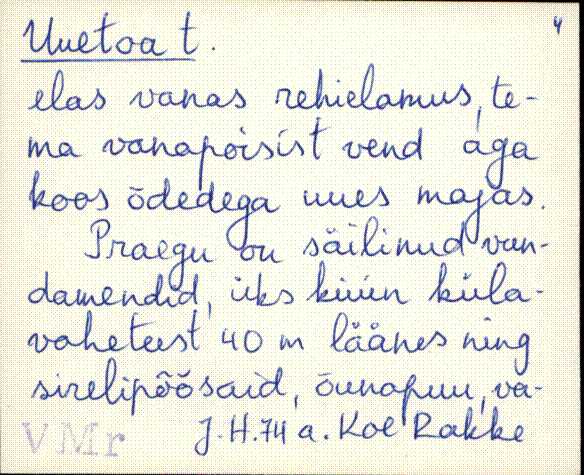 4
Uuetoa t.
elas vanas rehielamus, te-
ma vanapoisist vend aga
koos õdedega uues majas.
Praegu on säilinud vun-
damendid, üks küün küla-
vaheteest 40 m läänes ning
sirelipõõsaid, õunapuu, va-
J. H. 74 a. Koe Rakke
VMr